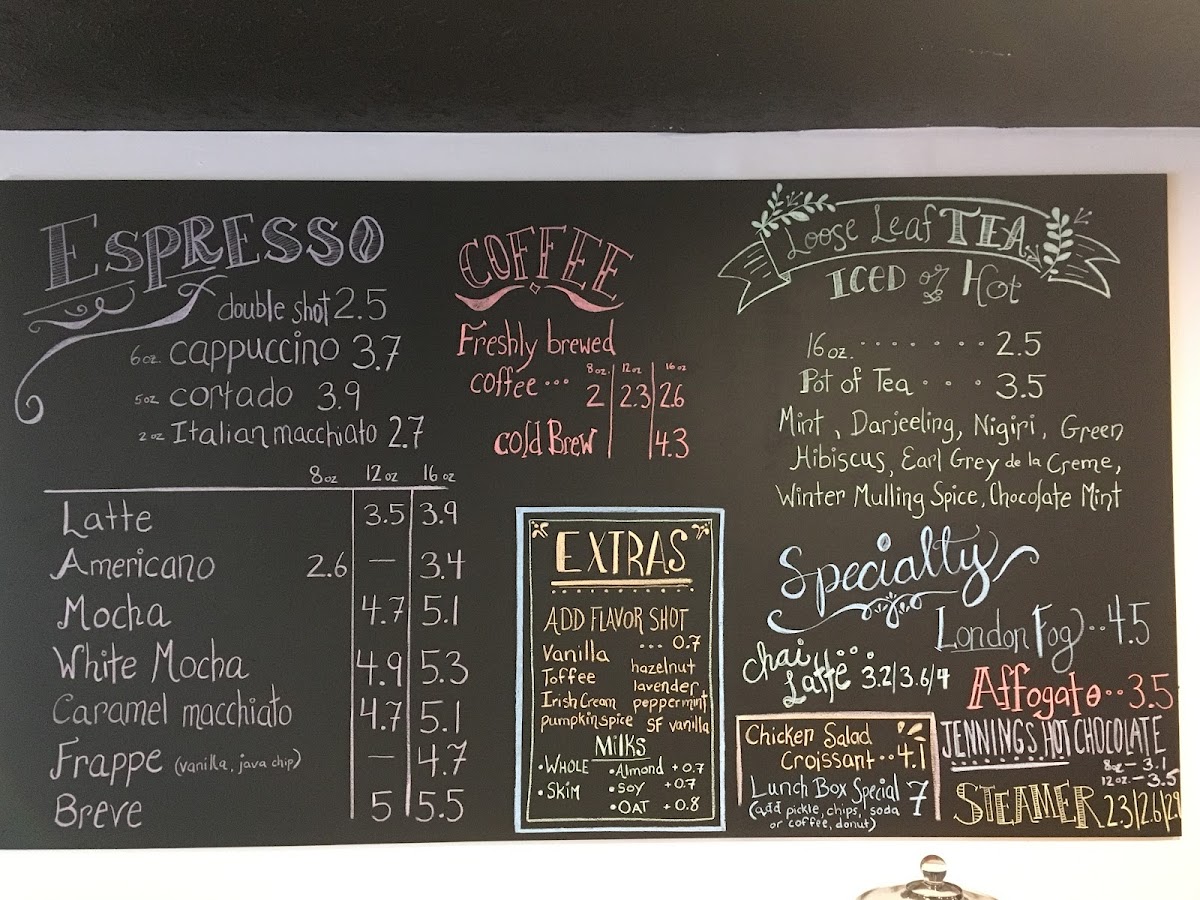 ESPRESSO
double shot 2.5
6oz. cappuccino 3.7
5oz cortado 3.9
2oz Italian macchiato 2.7
8oz 12oz 16oz
Latte 3.5 3.9
Americano 2.6 — 3.4
Mocha 4.7 5.1
White Mocha 4.9 5.3
Caramel macchiato 4.7 5.1
Frappe (vanilla, java chip) — 4.7
Breve 5 5.5
COFFEE
Freshly brewed
8oz. 12oz 16oz
coffee ... 2 2.3 2.6
cold Brew 4.3
EXTRAS
ADD FLAVOR SHOT
Vanilla ... 0.7
Toffee hazelnut
Irish Cream lavender
pumpkin spice peppermint
SF vanilla
Milks
•WHOLE •Almond +0.7
•SKIM •SOY +0.7
•OAT +0.8
Loose Leaf TEA
ICED or Hot
16oz. ........ 2.5
Pot of Tea . . . 3.5
Mint, Darjeeling, Nigiri, Green
Hibiscus, Earl Grey de la Creme,
Winter Mulling Spice, Chocolate Mint
Specialty
London Fog ..4.5
chai ...
Latte 3.2/3.6/4
Affogato..3.5
JENNINGS HOT CHOCOLATE
8oz – 3.1
12oz. – 3.5
STEAMER 2.3/2.6/2.9
Chicken Salad
Croissant..4.1
Lunch Box Special 7
(add pickle, chips, soda
or coffee, donut)